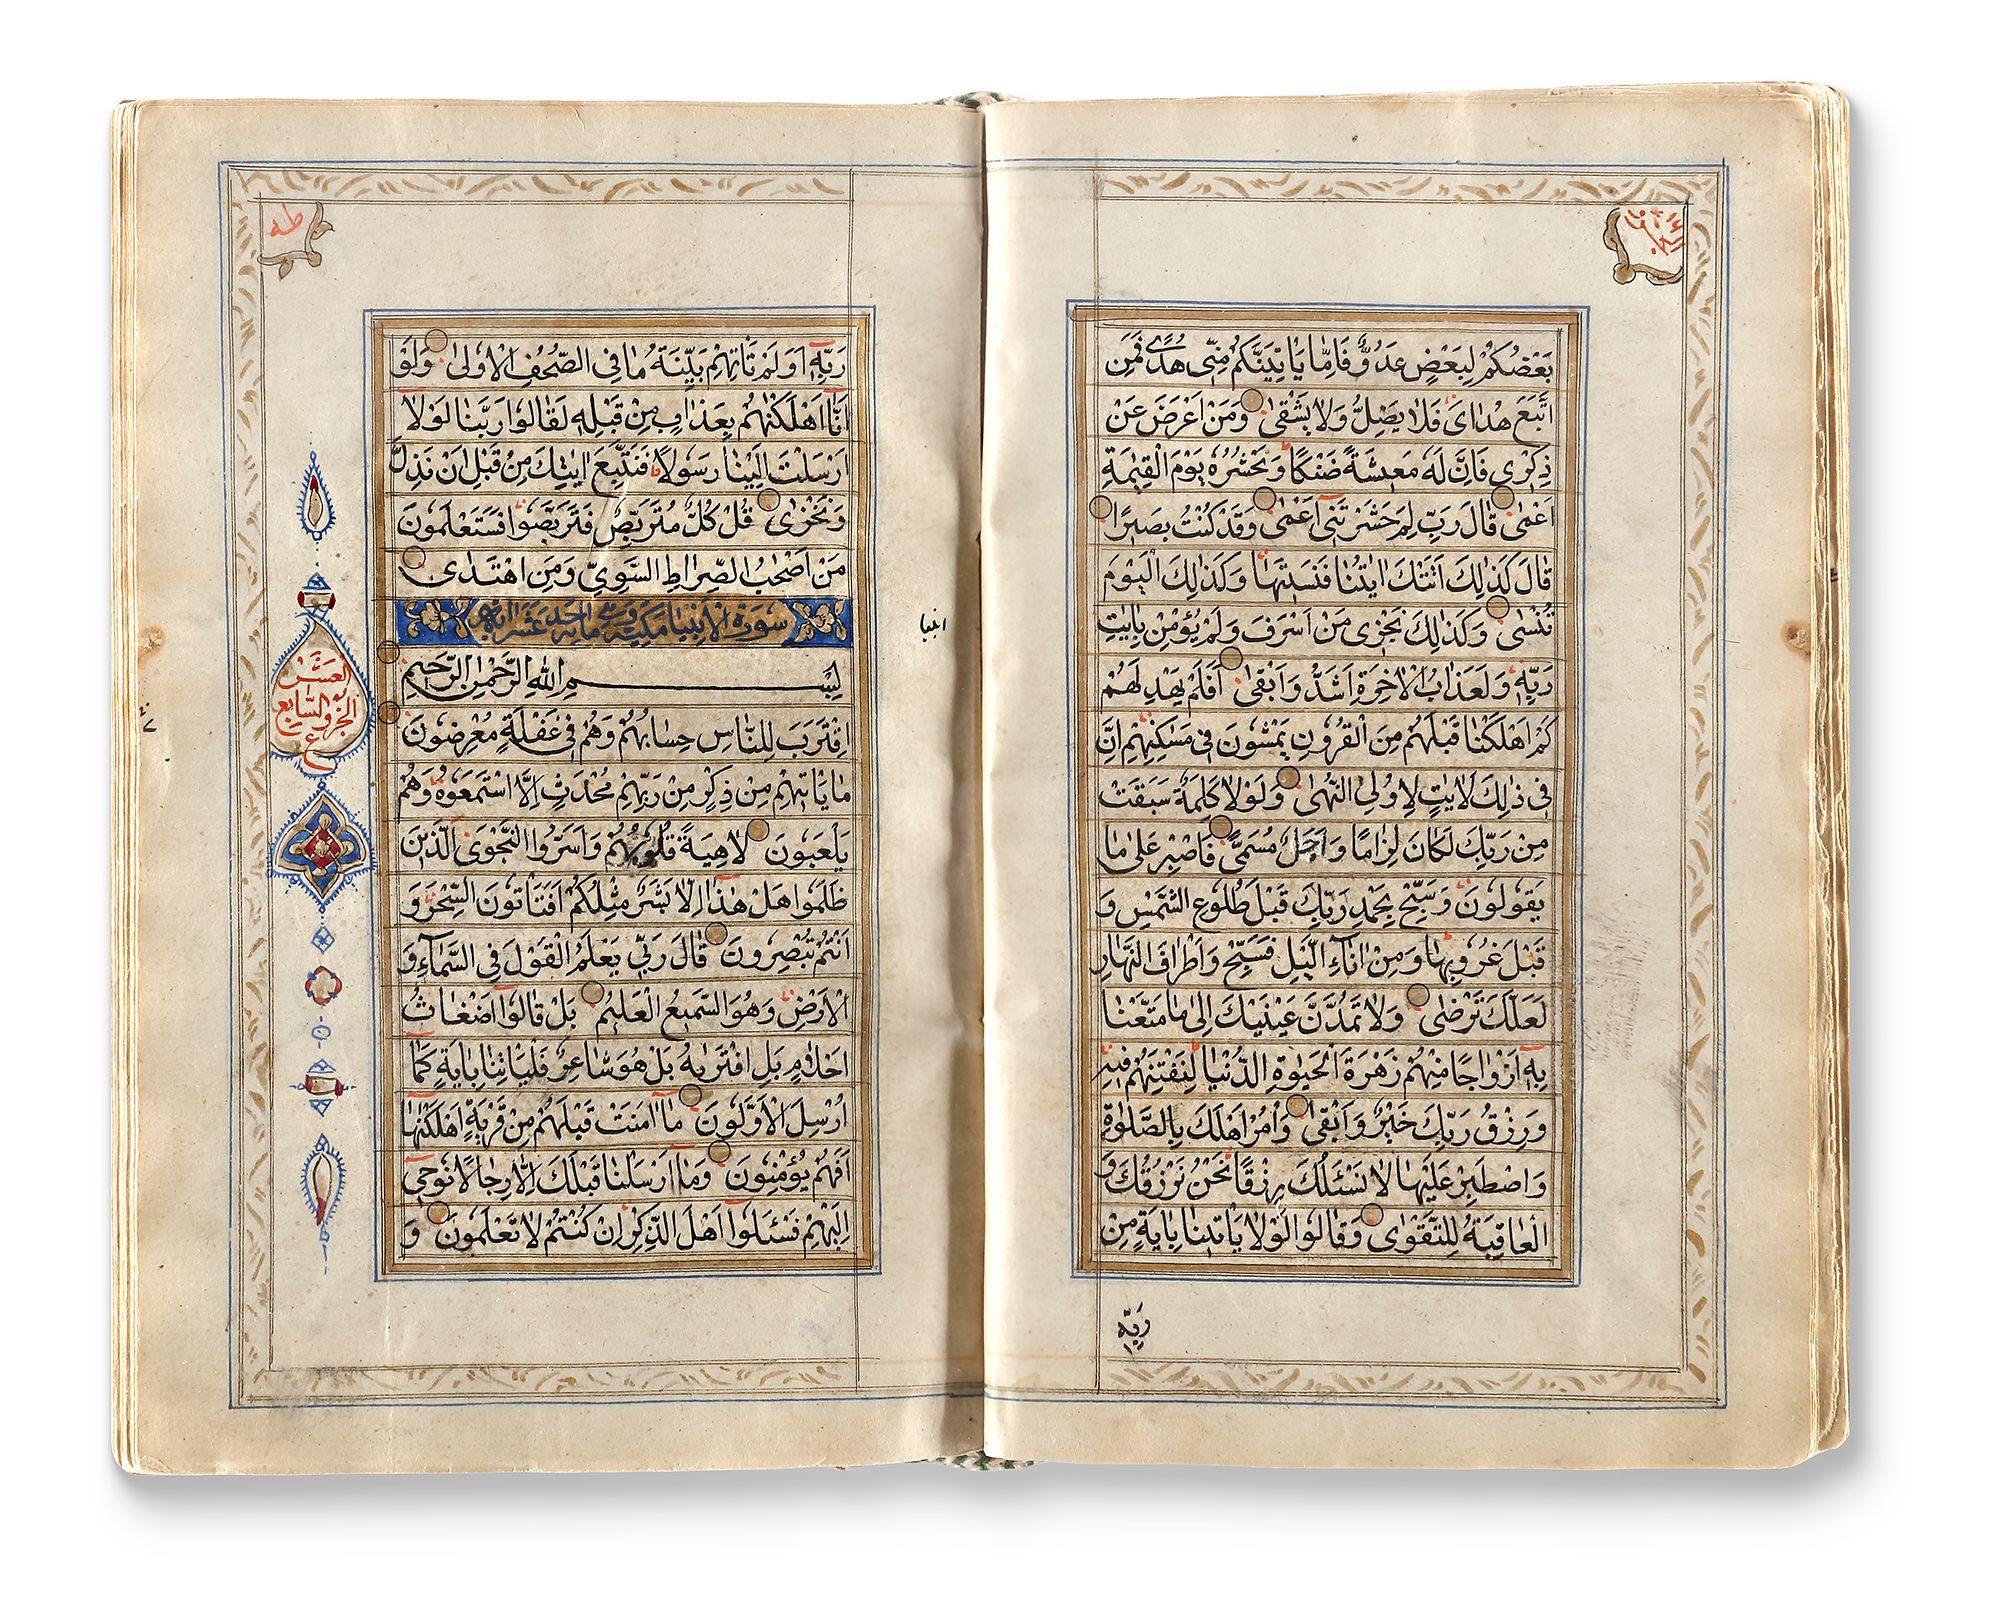 بَعْضُكُمْ لِبَعْضٍ عَدُوٌّ فَاِمَّا يَاْتِيَنَّكُمْ مِنّٖى هُدًى فَمَنِ
اتَّبَعَ هُدَاىَ فَلَا يَضِلُّ وَلَا يَشْقٰى وَمَنْ اَعْرَضَ عَنْ
ذِكْرٖى فَاِنَّ لَهُ مَعٖيشَةً ضَنْكًا وَنَحْشُرُهُ يَوْمَ الْقِيٰمَةِ
اَعْمٰى قَالَ رَبِّ لِمَ حَشَرْتَنٖى اَعْمٰى وَقَدْ كُنْتُ بَصٖيرًا
قَالَ كَذٰلِكَ اَتَتْكَ اٰيَتُنَا فَنَسٖيتَهَا وَكَذٰلِكَ الْيَوْمَ
تُنْسٰى وَكَذٰلِكَ نَجْزٖى مَنْ اَسْرَفَ وَلَمْ يُؤْمِنْ بِاٰيٰتِ
رَبِّهٖ وَلَعَذَابُ الْاٰخِرَةِ اَشَدُّ وَاَبْقٰى اَفَلَمْ يَهْدِ لَهُمْ
كَمْ اَهْلَكْنَا قَبْلَهُمْ مِنَ الْقُرُونِ يَمْشُونَ فٖى مَسٰكِنِهِمْ اِنَّ
فٖى ذٰلِكَ لَاٰيٰتٍ لِاُولِى النُّهٰى وَلَوْلَا كَلِمَةٌ سَبَقَتْ
مِنْ رَبِّكَ لَكَانَ لِزَامًا وَاَجَلٌ مُسَمًّى فَاصْبِرْ عَلٰى مَا
يَقُولُونَ وَسَبِّحْ بِحَمْدِ رَبِّكَ قَبْلَ طُلُوعِ الشَّمْسِ وَ
قَبْلَ غُرُوبِهَا وَمِنْ اٰنَآئِ الَّيْلِ فَسَبِّحْ وَاَطْرَافَ النَّهَارِ
لَعَلَّكَ تَرْضٰى وَلَا تَمُدَّنَّ عَيْنَيْكَ اِلٰى مَا مَتَّعْنَا
بِهٖ اَزْوَاجًا مِنْهُمْ زَهْرَةَ الْحَيٰوةِ الدُّنْيَا لِنَفْتِنَهُمْ فٖيهِ
وَرِزْقُ رَبِّكَ خَيْرٌ وَاَبْقٰى وَاْمُرْ اَهْلَكَ بِالصَّلٰوةِ
وَاصْطَبِرْ عَلَيْهَا لَا نَسْئَلُكَ رِزْقًا نَحْنُ نَرْزُقُكَ وَ
الْعَاقِبَةُ لِلتَّقْوٰى وَقَالُوا لَوْلَا يَاْتٖينَا بِاٰيَةٍ مِنْ
رَبِّهٖ
طه
رَبِّهٖ اَوَلَمْ تَاْتِهِمْ بَيِّنَةُ مَا فِى الصُّحُفِ الْاُولٰى وَلَوْ
اَنَّا اَهْلَكْنٰهُمْ بِعَذَابٍ مِنْ قَبْلِهٖ لَقَالُوا رَبَّنَا لَوْلَا
اَرْسَلْتَ اِلَيْنَا رَسُولًا فَنَتَّبِعَ اٰيٰتِكَ مِنْ قَبْلِ اَنْ نَذِلَّ
وَنَخْزٰى قُلْ كُلٌّ مُتَرَبِّصٌ فَتَرَبَّصُوا فَسَتَعْلَمُونَ
مَنْ اَصْحٰبُ الصِّرَاطِ السَّوِىِّ وَمَنِ اهْتَدٰى
سورة الانبيا مكية وهى مايه احد عشر ايه
بِسْمِ اللهِ الرَّحْمٰنِ الرَّحٖيمِ
اِقْتَرَبَ لِلنَّاسِ حِسَابُهُمْ وَهُمْ فٖى غَفْلَةٍ مُعْرِضُونَ
مَا يَاْتٖيهِمْ مِنْ ذِكْرٍ مِنْ رَبِّهِمْ مُحْدَثٍ اِلَّا اسْتَمَعُوهُ وَهُمْ
يَلْعَبُونَ لَاهِيَةً قُلُوبُهُمْ وَاَسَرُّوا النَّجْوَى الَّذٖينَ
ظَلَمُوا هَلْ هٰذَا اِلَّا بَشَرٌ مِثْلُكُمْ اَفَتَاْتُونَ السِّحْرَ وَ
اَنْتُمْ تُبْصِرُونَ قَالَ رَبّٖى يَعْلَمُ الْقَوْلَ فِى السَّمَآءِ وَ
الْاَرْضِ وَهُوَ السَّمٖيعُ الْعَلٖيمُ بَلْ قَالُوا اَضْغَاثُ
اَحْلَامٍ بَلِ افْتَرٰيهُ بَلْ هُوَ شَاعِرٌ فَلْيَاْتِنَا بِاٰيَةٍ كَمَا
اُرْسِلَ الْاَوَّلُونَ مَا اٰمَنَتْ قَبْلَهُمْ مِنْ قَرْيَةٍ اَهْلَكْنٰهَا
اَفَهُمْ يُؤْمِنُونَ وَمَا اَرْسَلْنَا قَبْلَكَ اِلَّا رِجَالًا نُوحٖى
اِلَيْهِمْ فَسْئَلُوا اَهْلَ الذِّكْرِ اِنْ كُنْتُمْ لَا تَعْلَمُونَ وَ
العشر
الجزو السابع
ع